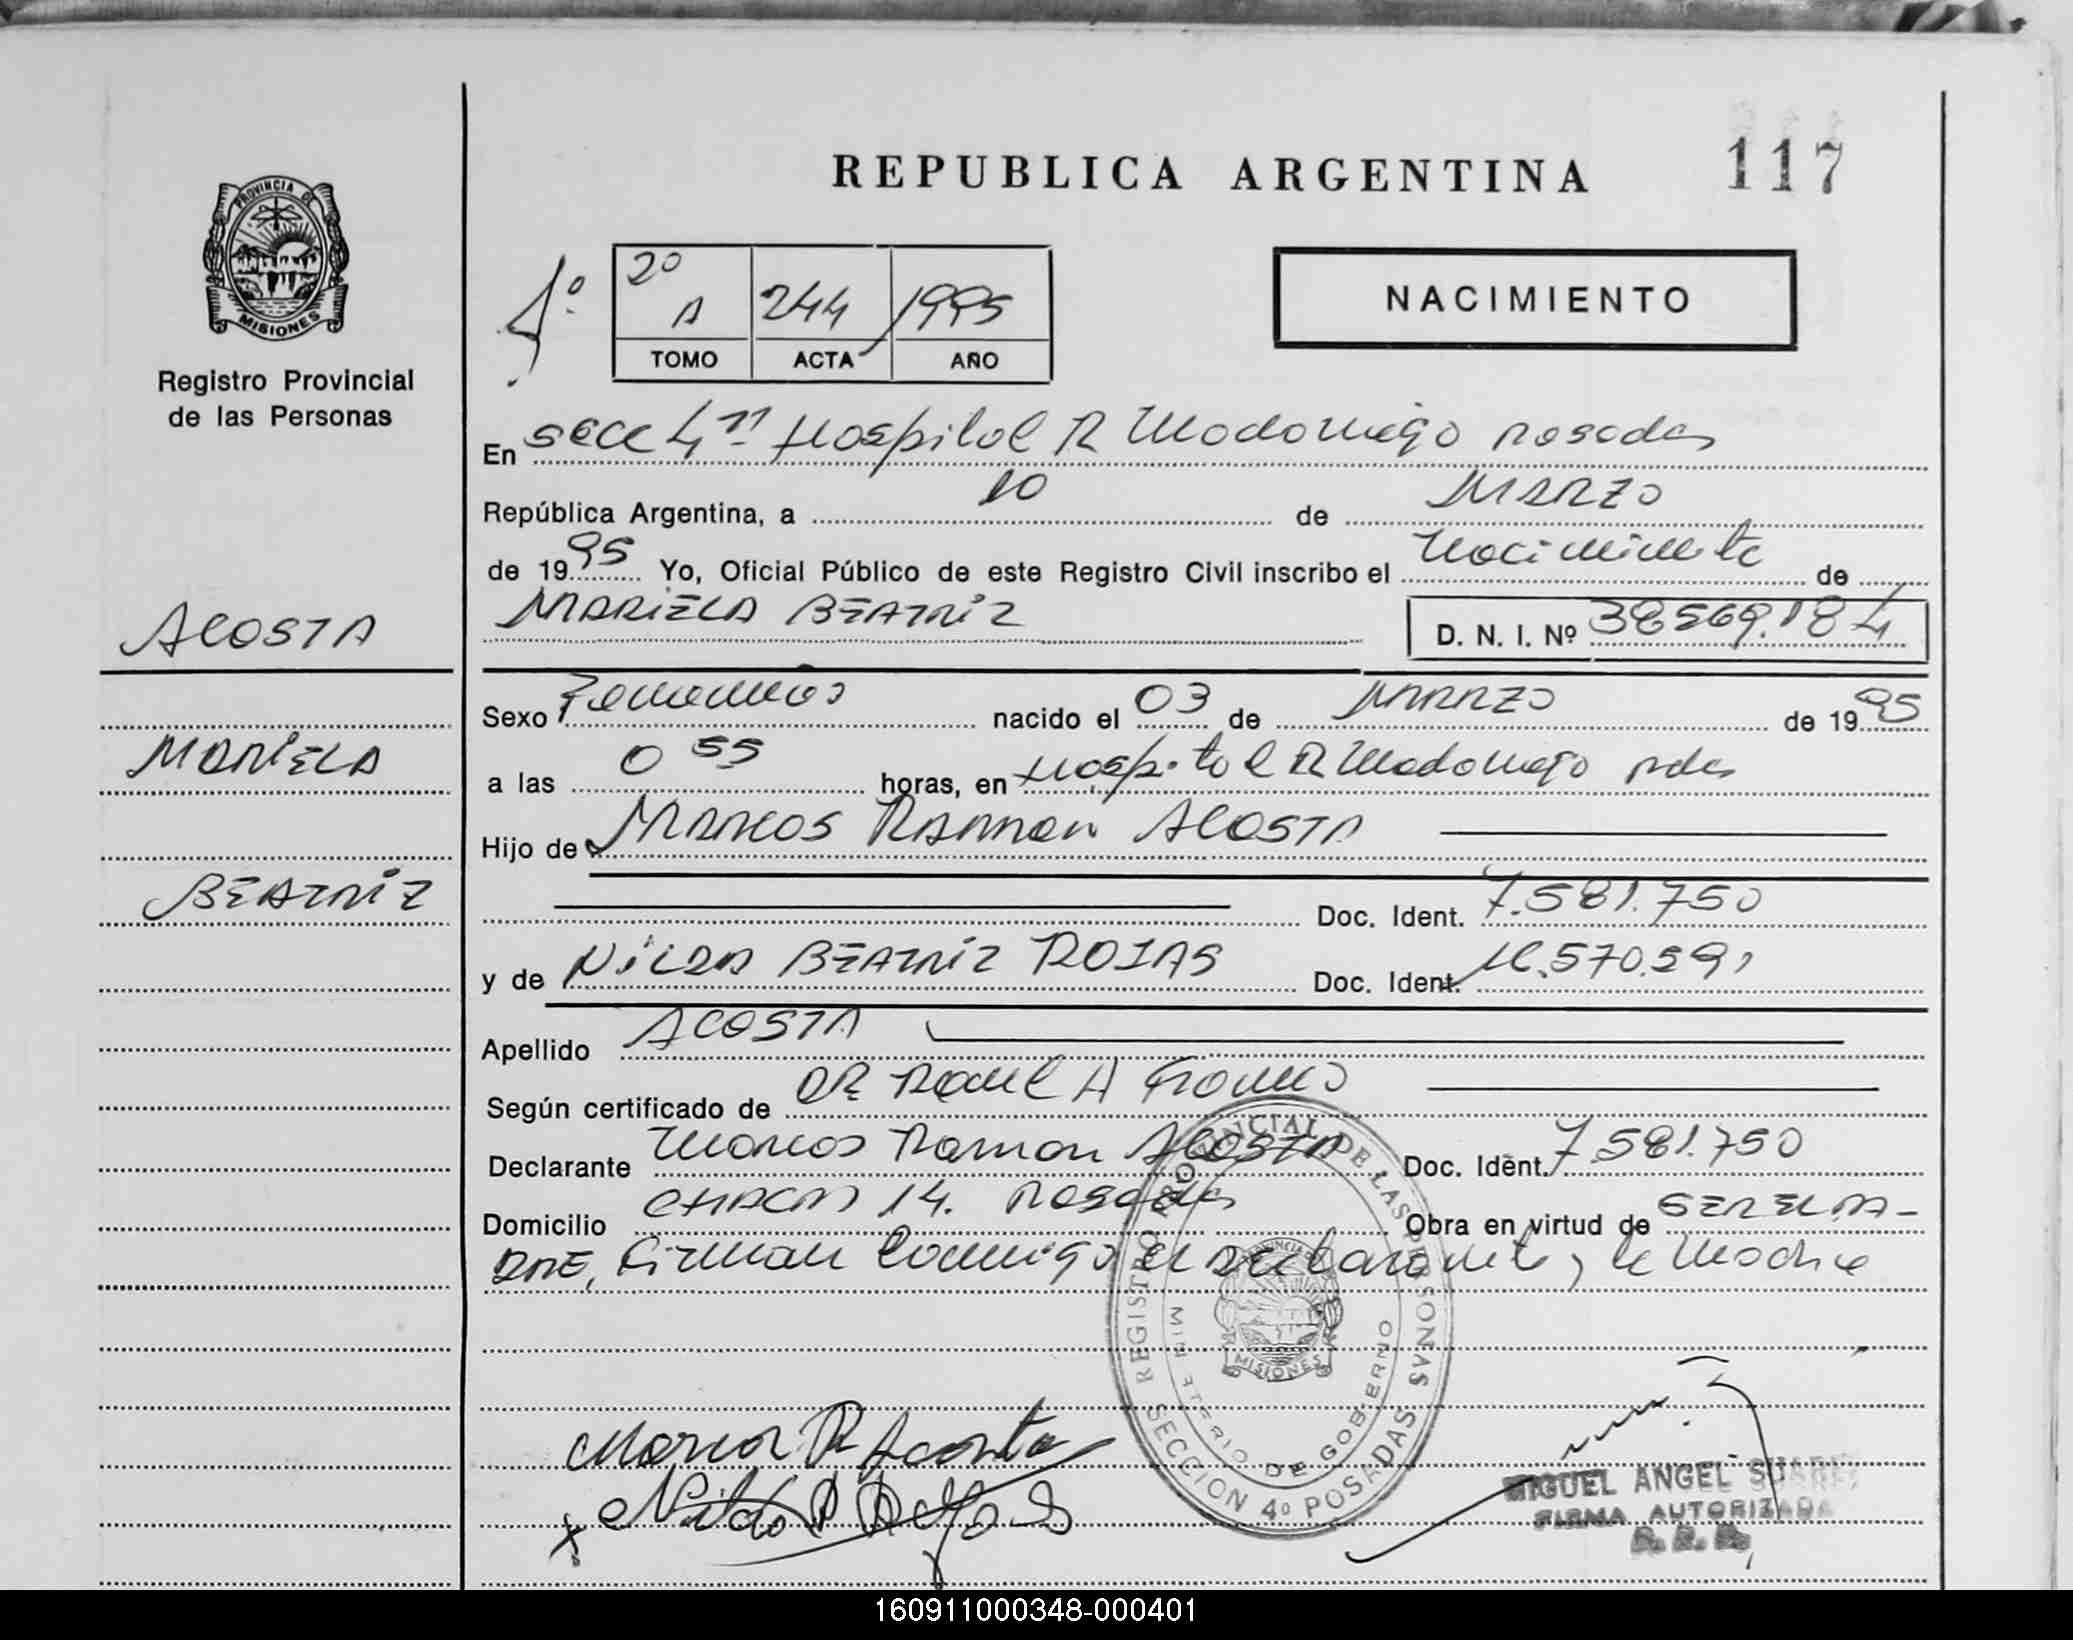 REPUBLICA ARGENTINA 117
PROVINCIA DE
MISIONES
Registro Provincial
de las Personas
4º 2º A 244 1995
TOMO ACTA AÑO
NACIMIENTO
En secc 4ª Hospital R Madariaga Posadas
República Argentina, a 10 de MARZO
de 1995 Yo, Oficial Público de este Registro Civil inscribo el nacimiento de
MARIELA BEATRIZ D. N. I. Nº 38569.184
ACOSTA
MARIELA
BEATRIZ
Sexo Femenino nacido el 03 de MARZO de 1995
a las 0 55 horas, en Hospital R Madariaga pdas
Hijo de MARCOS RAMON ACOSTA
Doc. Ident. 7.581.750
y de NILDA BEATRIZ ROJAS Doc. Ident.
Apellido ACOSTA
Según certificado de DR RAUL A
Declarante Marcos Ramon ACOSTA Doc. Ident. 7.581.750
Domicilio CHACRA 14. Posadas Obra en virtud de SER EL PA-
DRE, Firman Conmigo el declarante y la Madre
REGISTRO PROVINCIAL DE LAS PERSONAS
MINISTERIO DE GOBIERNO
PROVINCIA DE
MISIONES
SECCION 4º POSADAS
Marcos R Acosta
x Nilda B Rojas
MIGUEL ANGEL SUAREZ
FIRMA AUTORIZADA
160911000348-000401